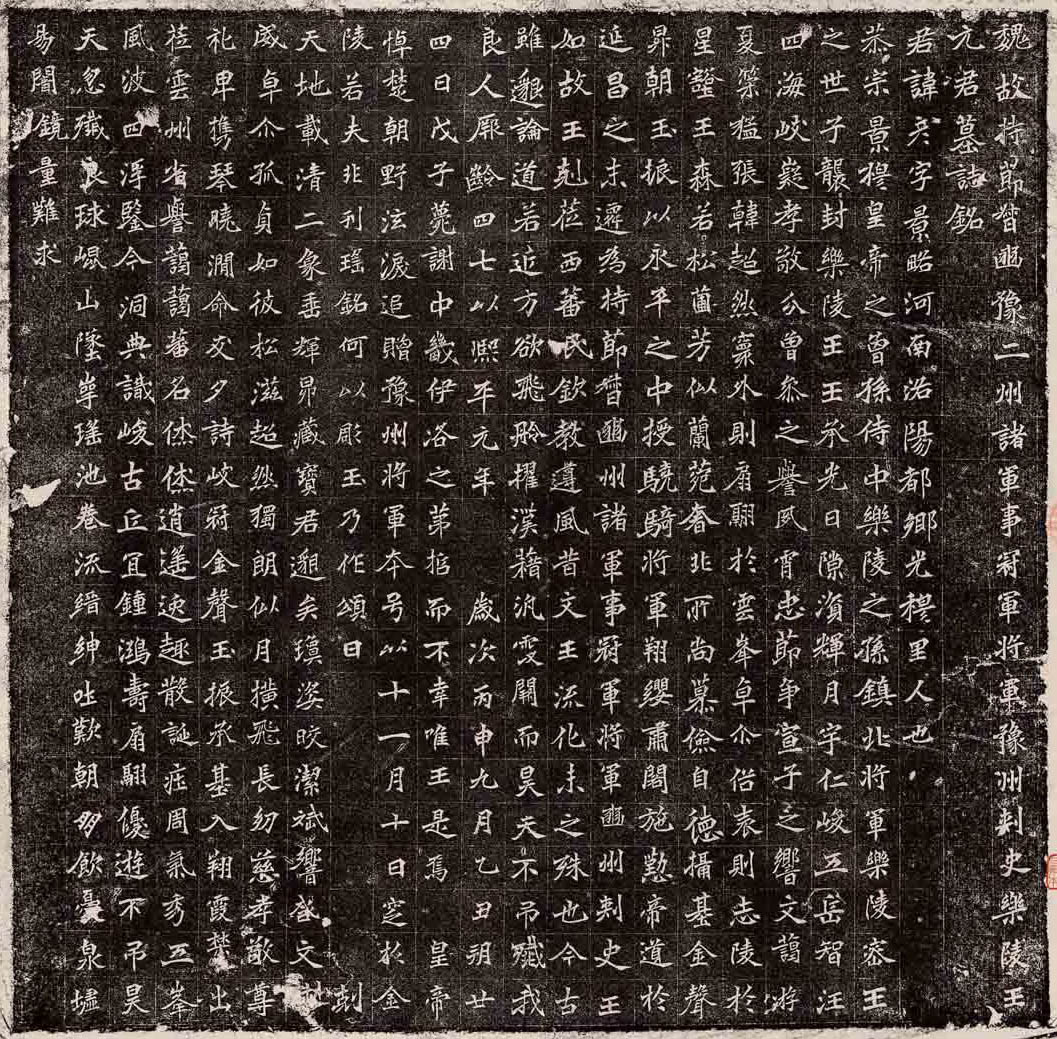 魏故持節督豳豫二州諸軍事冠軍將軍豫州刺史樂陵王
元君墓誌銘
君諱彦字景略河南洛陽都鄉光穆里人也
恭宗景穆皇帝之曾孫侍中樂陵之孫鎮北將軍樂陵密王
之世子襲封樂陵王王承光日隙資輝月宇仁峻五岳智汪
四海岐嶷孝敬公曾参之譽夙宵忠節争宣子之響文藹游
夏策猛張韓超然寡外則扇翮於雲峯卓尒俗表則志陵於
星壑王森若松菌芳似蘭菀奢非所尚慕儉自德攝基金聲
昇朝玉振以永平之中授驍騎將軍翔纓肅閣施懃帝道於
延昌之末遷為持節督豳州諸軍事冠軍將軍豳州刺史王
如故王剋莅西蕃民欽教遵風昔文王流化未之殊也今古
雖邈論道若近方欲飛聆擢漢藉汎雯關而昊天不弔殲我
良人厤齡四七以熙平元年歲次丙申九月乙丑朔廿
四日戊子薨謝中畿伊洛之苐揞而不幸唯王是焉皇帝
悼楚朝野泫淚追贈豫州將軍夲号以十一月十日窆於金
陵若夫非刋瑤銘何以彫玉乃作頌曰
天地載清二象垂輝昴藏寳君邈矣瓊姿皎潔斌響盛文
威卓尒孤貞如彼松滋超然獨朗似月横飛長幼慈孝敬尊
礼卑㩦琴曉澗命交夕詩岐冠金聲玉振承基入翔霞禁出
莅雲州省譽藹藹蕃名烋烋逍遥逺趣散誕庄周氣秀五峯
風波四浮鑒今洞典識峻古丘冝鍾鴻壽扇翮優遊不弔昊
天忽殲良球崐山墜寧瑤池卷流縉紳吐歎朝多飲憂泉壚
易闇鏡量難求